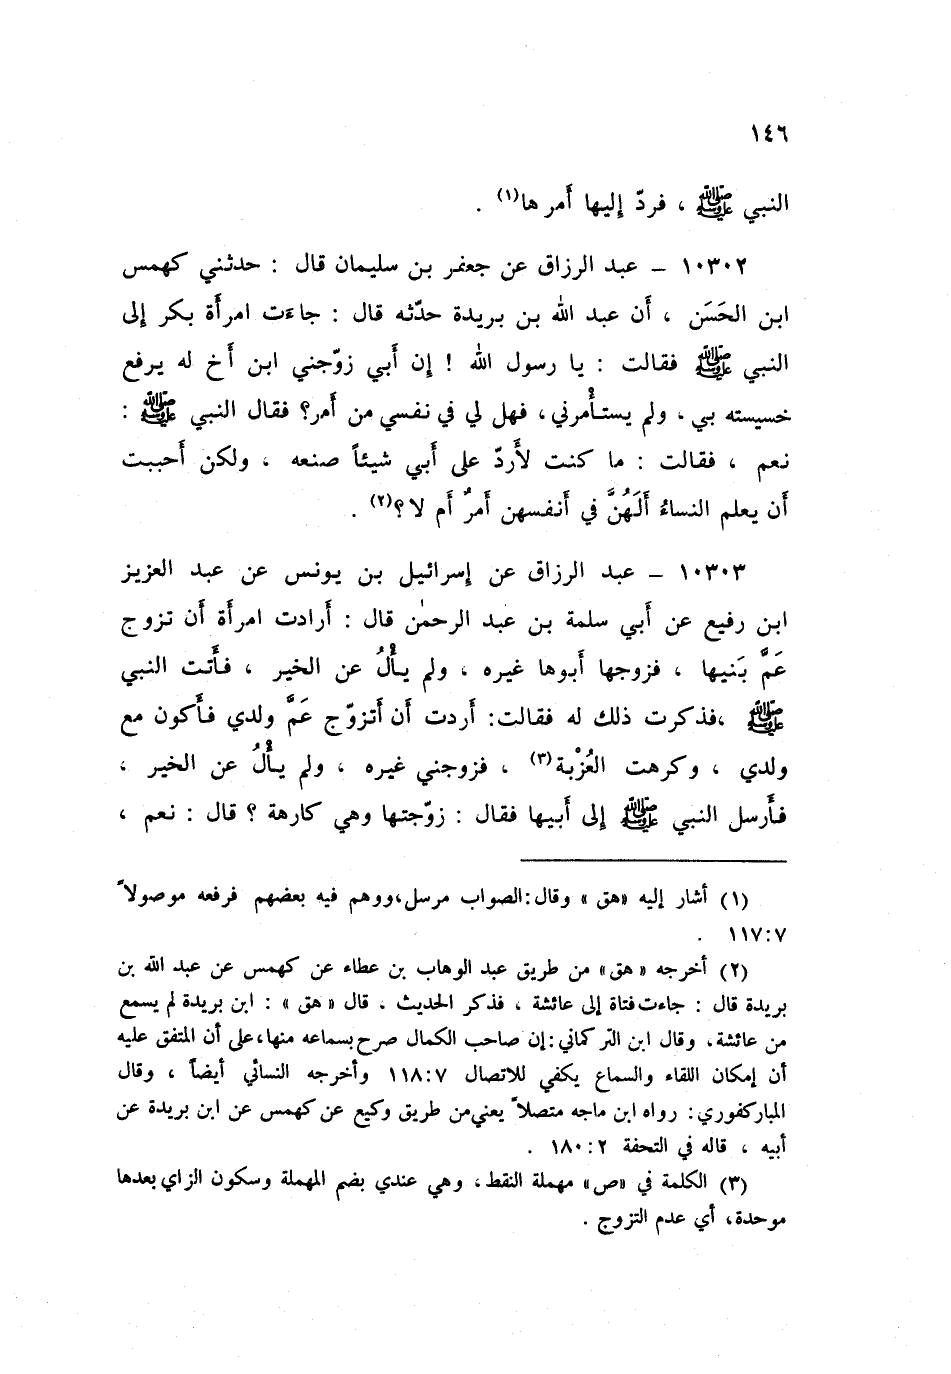 ١٤٦
النبي ﷺ ، فردّ إليها أمرها(١) .
١٠٣٠٢ ـ عبد الرزاق عن جعفر بن سليمان قال : حدثني كهمس
ابن الحَسَن ، أن عبد الله بن بريدة حدّثه قال : جاءت امرأة بكر إلى
النبي ﷺ فقالت : يا رسول الله ! إن أبي زوّجني ابن أخ له يرفع
خسيسته بي ، ولم يستأْمرني ، فهل لي في نفسي من أمر؟ فقال النبي ﷺ :
نعم ، فقالت : ما كنت لأَردّ على أبي شيئاً صنعه ، ولكن أحببت
أن يعلم النساءُ أَلَهُنَّ في أنفسهن أمرٌ أم لا؟(٢) .
١٠٣٠٣ ـ عبد الرزاق عن إسرائيل بن يونس عن عبد العزيز
ابن رفيع عن أبي سلمة بن عبد الرحمٰن قال : أرادت امرأة أن تزوج
عَمَّ بَنيها ، فزوجها أبوها غيره ، ولم يأْلُ عن الخير ، فأَتت النبي
ﷺ ،فذكرت ذلك له فقالت: أردت أن أتزوّج عَمَّ ولدي فأَكون مع
ولدي ، وكرهت العُزْبة(٣) ، فزوجني غيره ، ولم يأْلُ عن الخير ،
فأَرسل النبي ﷺ إلى أبيها فقال : زوّجتها وهي كارهة ؟ قال : نعم ،
(١) أشار إليه «هق» وقال:الصواب مرسل،ووهم فيه بعضهم فرفعه موصولاً
١١٧:٧ .
(٢) أخرجه «هق» من طريق عبد الوهاب بن عطاء عن كهمس عن عبد الله بن
بريدة قال : جاءت فتاة إلى عائشة ، فذكر الحديث ، قال «هق» : ابن بريدة لم يسمع
من عائشة، وقال ابن التركماني:إن صاحب الكمال صرح بسماعه منها،على أن المتفق عليه
أن إمكان اللقاء والسماع يكفي للاتصال ١١٨:٧ وأخرجه النسائي أيضاً ، وقال
المباركفوري: رواه ابن ماجه متصلاً يعني من طريق وكيع عن كهمس عن ابن بريدة عن
أبيه ، قاله في التحفة ١٨٠:٢ .
(٣) الكلمة في «ص» مهملة النقط، وهي عندي بضم المهملة وسكون الزاي بعدها
موحدة، أي عدم التزوج .